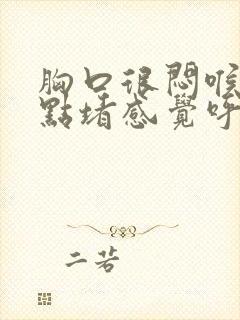 胸口很悶喉
點堵感覺呼
二若